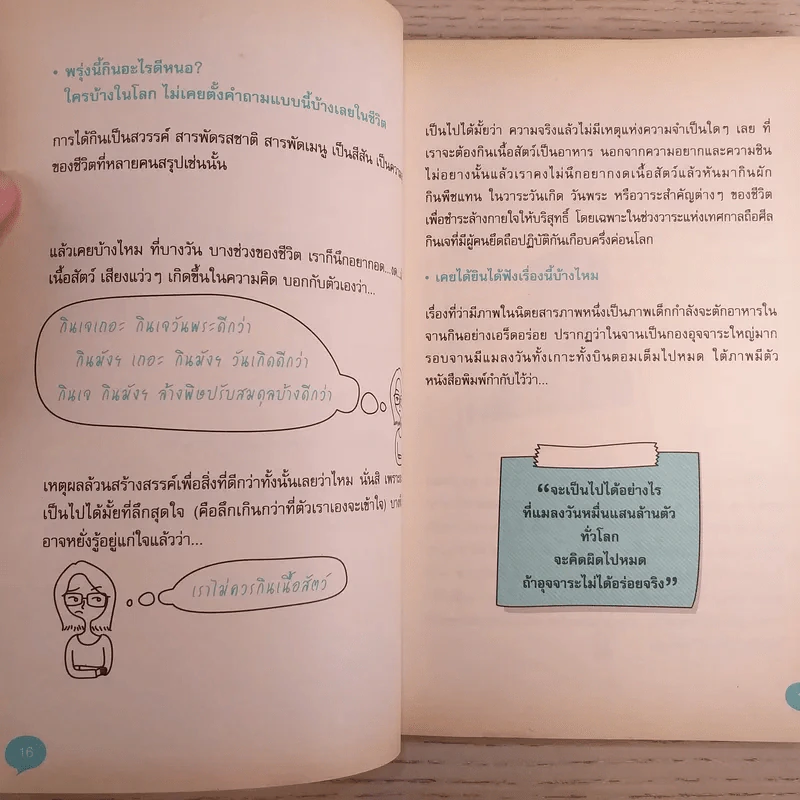 • พรุ่งนี้กินอะไรดีหนอ?
ใครบ้างในโลก ไม่เคยตั้งคำถามแบบนี้บ้างเลยในชีวิต
การได้กินเป็นสวรรค์ สารพัดรสชาติ สารพัดเมนู เป็นสีสัน
ของชีวิตที่หลายคนสรุปเช่นนั้น
แล้วเคยบ้างไหม ที่บางวัน บางช่วงของชีวิต เราก็นึกอยากอด...
เนื้อสัตว์ เสียงแว่วๆ เกิดขึ้นในความคิด บอกกับตัวเองว่า...
กินเจเถอะ กินเจวันพระดีกว่า
กินมังฯ เถอะ กินมังฯ วันเกิดดีกว่า
กินเจ กินมังฯ ล้างพิษปรับสมดุลบ้างดีกว่า
เหตุผลล้วนสร้างสรรค์เพื่อสิ่งที่ดีกว่าทั้งนั้นเลยว่าไหม นั่นสิ
เป็นไปได้มั้ยที่ลึกสุดใจ (คือลึกเกินกว่าที่ตัวเราเองจะเข้าใจ)
อาจหยั่งรู้อยู่แก่ใจแล้วว่า...
เราไม่ควรกินเนื้อสัตว์
16
เป็นไปได้มั้ยว่า ความจริงแล้วไม่มีเหตุแห่งความจำเป็นใดๆ เลย ที่
เราจะต้องกินเนื้อสัตว์เป็นอาหาร นอกจากความอยากและความชิน
ไม่อย่างนั้นแล้วเราคงไม่นึกอยากงดเนื้อสัตว์แล้วหันมากินผัก
กินพืชแทน ในวาระวันเกิด วันพระ หรือวาระสำคัญต่างๆ ของชีวิต
เพื่อชำระล้างกายใจให้บริสุทธิ์ โดยเฉพาะในช่วงวาระแห่งเทศกาลถือศีล
กินเจที่มีผู้คนยึดถือปฏิบัติกันเกือบครึ่งค่อนโลก
• เคยได้ยินได้ฟังเรื่องนี้บ้างไหม
เรื่องที่ว่ามีภาพในนิตยสารภาพหนึ่งเป็นภาพเด็กกำลังจะตักอาหารใน
จานกินอย่างเอร็ดอร่อย ปรากฏว่าในจานเป็นกองอุจจาระใหญ่มาก
รอบจานมีแมลงวันทั้งเกาะทั้งบินตอมเต็มไปหมด ใต้ภาพมีตัว
หนังสือพิมพ์กำกับไว้ว่า...
“จะเป็นไปได้อย่างไร
ที่แมลงวันหมื่นแสนล้านตัว
ทั่วโลก
จะคิดผิดไปหมด
ถ้าอุจจาระไม่ได้อร่อยจริง”